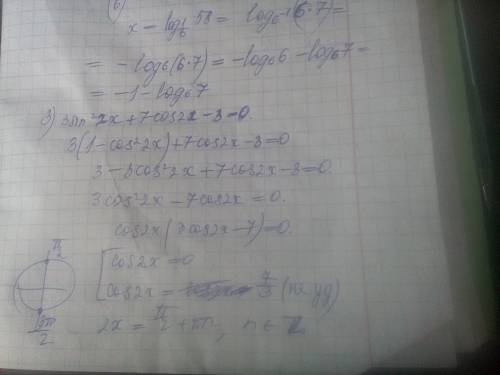 б)
x - log_{1/6} 58 = log_{6^{-1}}(6·7) =
= -log₆(6·7) = -log₆6 - log₆7 =
= -1 - log₆7
3) 3sin²2x + 7cos2x - 3 = 0.
3(1 - cos²2x) + 7cos2x - 3 = 0
3 - 3cos²2x + 7cos2x - 3 = 0.
3cos²2x - 7cos2x = 0.
cos2x(3cos2x - 7) = 0.
π/2
[cos2x = 0
cos2x = 7/3 (не уд)
3π/2
2x = π/2 + πn, n ∈ Z